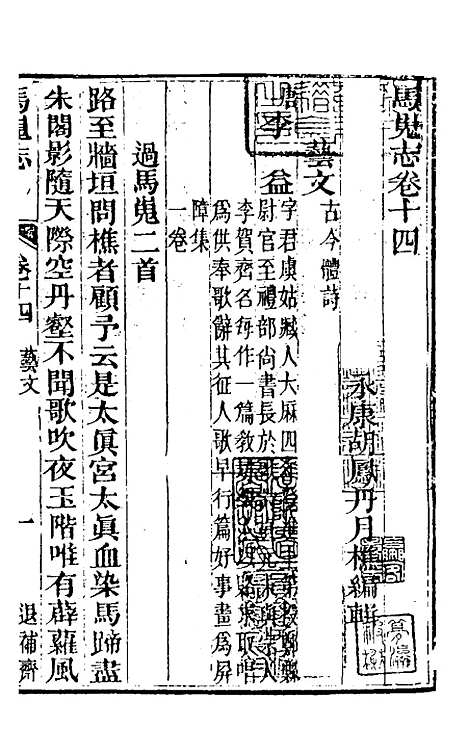 馬嵬志卷十四
永康胡鳳丹月樵編輯
藝文
古今體詩
李益
字君虞姑臧人大麻四年登進士第授鄭縣
尉官至禮部尚書長於人
李賀齊名每作一篇教求取唱
爲供奉歌辭其征人歌早行篇好事畫爲屏
障集
一卷
過馬嵬二首
路至牆垣問樵者顧予云是太眞宮太眞血染馬蹄盡
朱閣影隨天際空丹壑不聞歌吹夜玉階唯有薜蘿風
馬嵬志 卷十四 藝文 一 退補齋